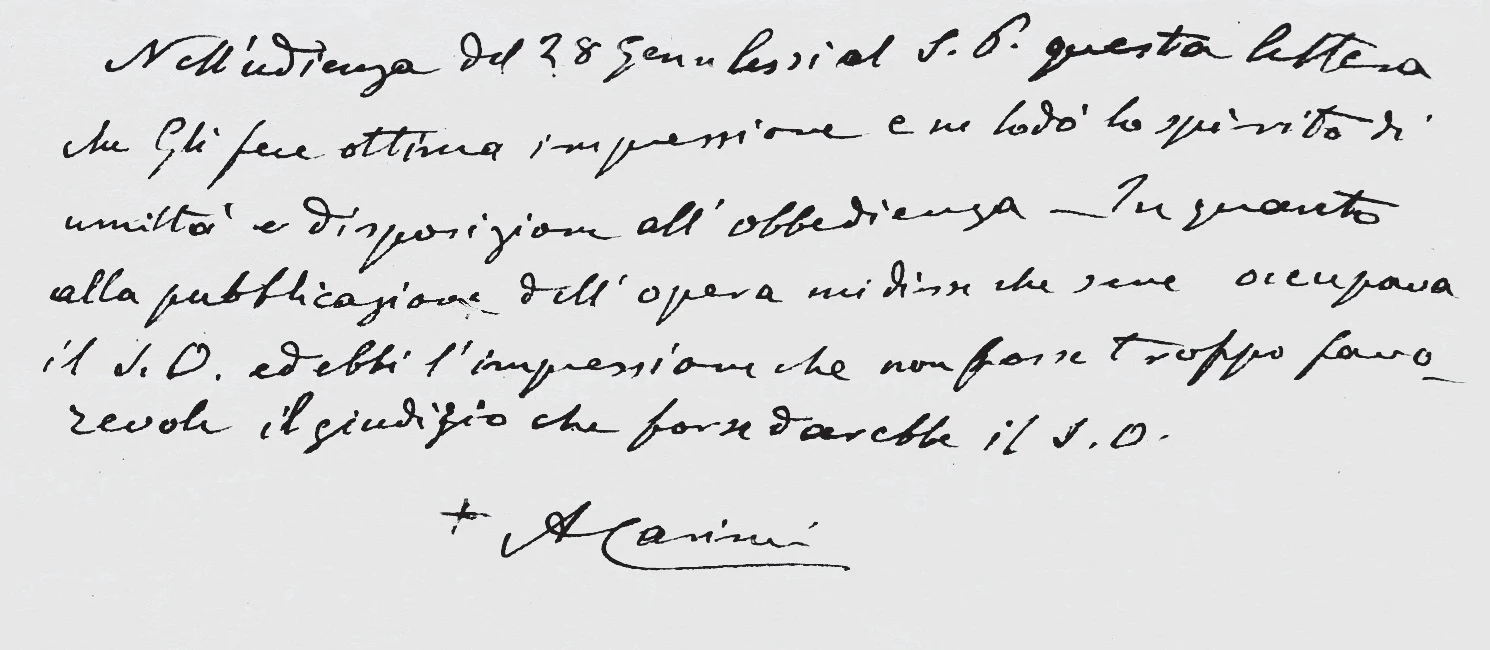 Nell'udienza del 28 Genn lessi al S. P. questa lettera
che Gli fece ottima impressione e ne lodò lo spirito di
umiltà e disposizione all'obbedienza — In quanto
alla pubblicazione dell'opera mi disse che se ne occupava
il S. O. ed ebbi l'impressione che non fosse troppo favo_
revole il giudizio che forse darebbe il S. O.
+ A Carinci